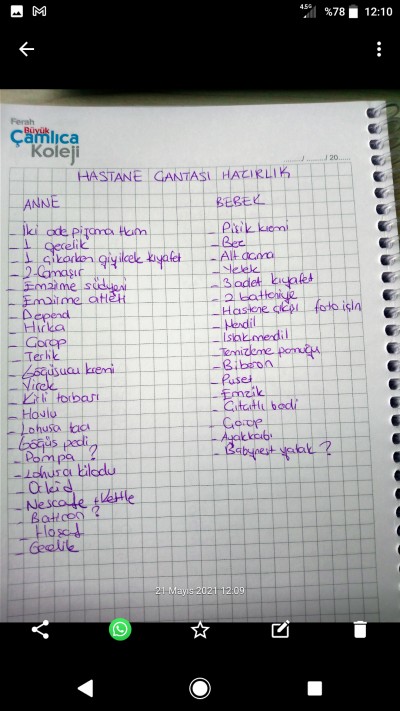 4.5G %78 12:10
Ferah
Büyük
Çamlıca
Koleji
...../......../20......
HASTANE ÇANTASI HAZIRLIK
ANNE
- İki adet pijama takım
- 1 gecelik
- 1 çıkarken giyilcek kıyafet
- 2 Çamaşır
- Emzirme südyeni
- Emzirme atleti
- Depend
- Hırka
- Çorap
- Terlik
- Göğüsucu kremi
- Yicek
- Kirli torbası
- Havlu
- Lohusa tacı
- Göğüs pedi
- Pompa ?
- Lohusa kilodu
- Orkid
- Nescafe + kettle
- Baticon ?
- Gecelik
BEBEK
- Pişik kremi
- Bez
- Alt açma
- Yelek
- 3 adet kıyafet
- 2 battaniye
- Hastane çıkışı foto için
- Mendil
- Islak mendil
- Temizleme pamuğu
- Biberon
- Puset
- Emzik
- Çıtçıtlı badi
- Çorap
- Ayakkabı
- Babynest yatak ?
21 Mayıs 2021 12:09